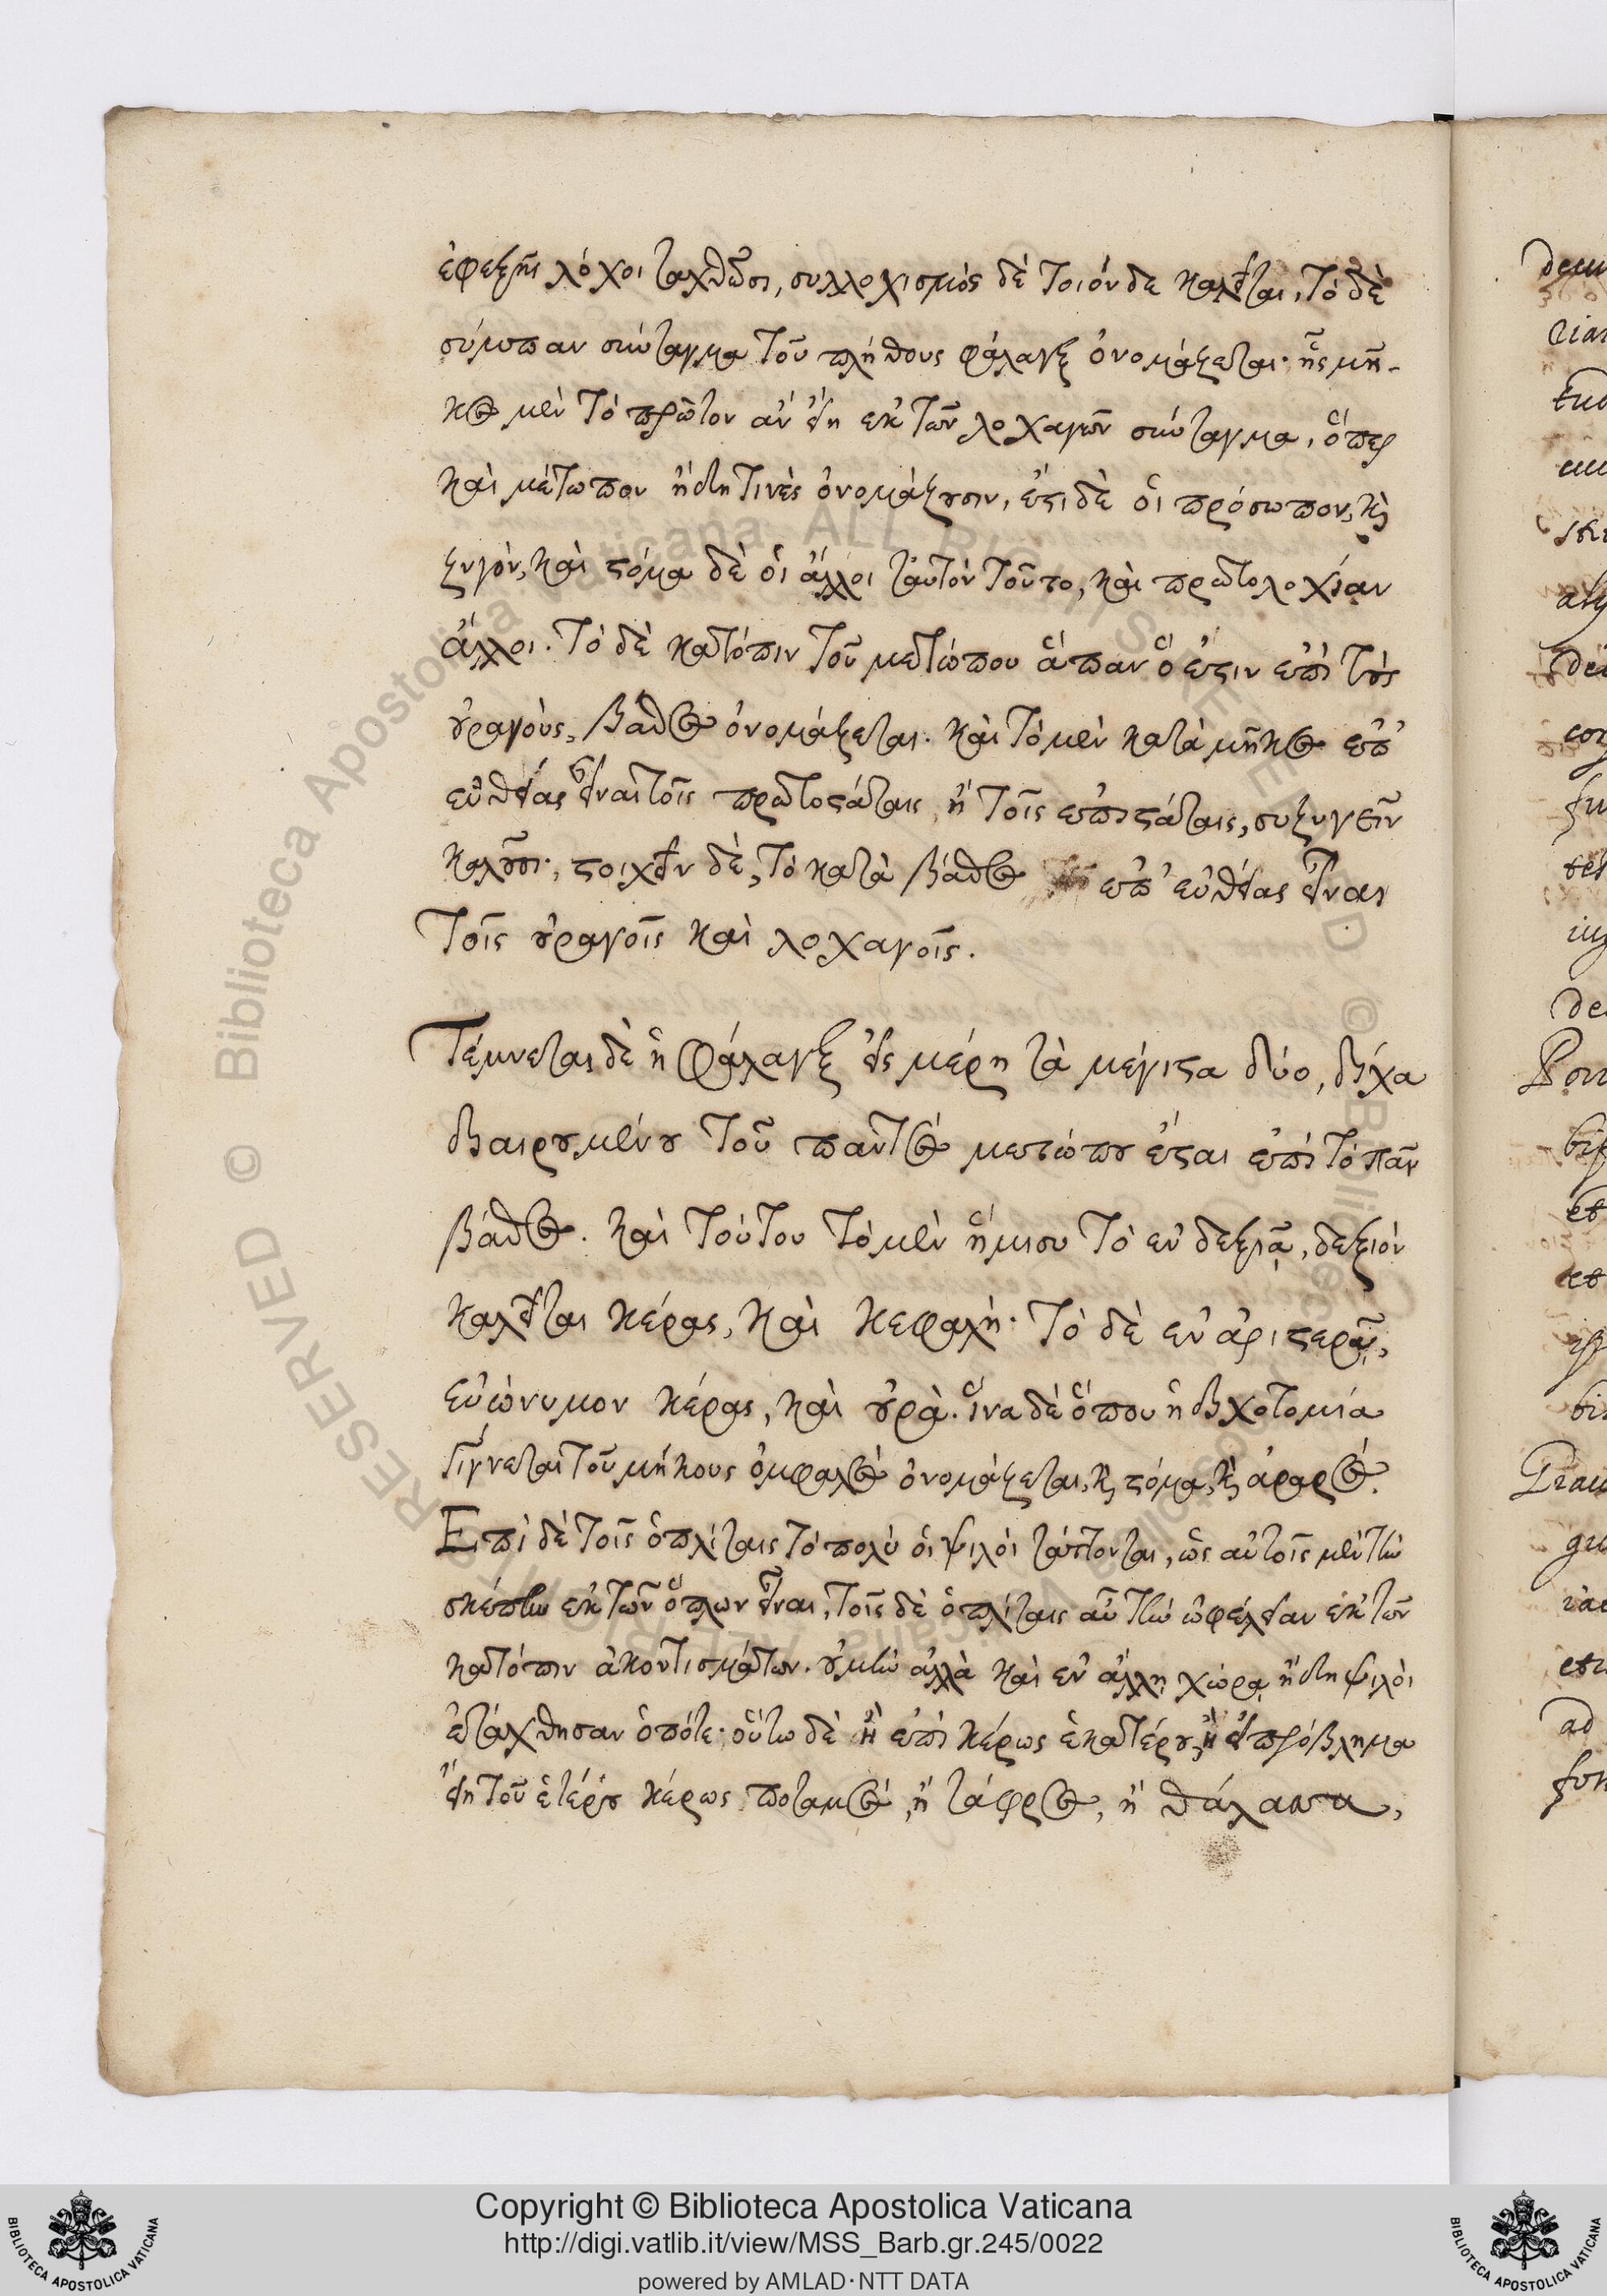 ἐφεξῆς λόχοι ταχθῶσι, συλλοχισμός δὲ τοιόνδε καλεῖται, τὸ δὲ
σύμπαν σύνταγμα τοῦ πλήθους φάλαγξ ὀνομάζεται· ἧς μῆ-
κος μὲν τὸ πρῶτον ἀν εἴη ἐκ τῶν λοχαγῶν σύνταγμα, ὅπερ
καὶ μέτωπον ἤδη τινὲς ὀνομάζουσιν, ἔτι δὲ οἱ πρόσωπον, καὶ
ζυγὸν, καὶ στόμα δὲ οἱ ἄλλοι ταὐτὸν τοῦτο, καὶ πρωτολοχίαν
ἄλλοι. τὸ δὲ κατόπιν τοῦ μετώπου ἅπαν ὅ ἐστιν ἐπὶ τοὺς
οὐραγοὺς, βάθος ὀνομάζεται. καὶ τὸ μὲν κατὰ μῆκος ἐπ'
εὐθείας εἶναι τοῖς πρωτοστάταις ἢ τοῖς ἐπιστάταις, συζυγεῖν
καλοῦσι· στοιχεῖν δὲ, τὸ κατὰ βάθος ἐπ' εὐθείας εἶναι
τοῖς οὐραγοῖς καὶ λοχαγοῖς.
Τέμνεται δὲ ἡ φάλαγξ εἰς μέρη τὰ μέγιστα δύο, δίχα
διαιρουμένου τοῦ παντὸς μετώπου ἔσται ἐπὶ τὸ πᾶν
βάθος. καὶ τούτου τὸ μὲν ἥμισυ τὸ ἐν δεξιᾷ, δεξιὸν
καλεῖται κέρας, καὶ κεφαλή· τὸ δὲ ἐν ἀριστερᾷ,
εὐώνυμον κέρας, καὶ οὐρὰ. ἵνα δὲ ὅπου ἡ διχοτομία
γίγνεται τοῦ μήκους ὀμφαλὸς ὀνομάζεται, καὶ στόμα, καὶ ἀραρός.
Επὶ δὲ τοῖς ὁπλίταις τὸ πολὺ οἱ ψιλοὶ τάττονται, ὡς αὐτοῖς μὲν τὴν
σκέπην ἐκ τῶν ὅπλων εἶναι, τοῖς δὲ ὁπλίταις αὖ τὴν ὠφέλειαν ἐκ τῶν
κατόπιν ἀκοντισμάτων. οὐ μὴν ἀλλὰ καὶ ἐν ἄλλῃ χώρᾳ ἤδη ψιλοὶ
ἐτάχθησαν ὁπότε· οὕτω δὲ ἢ ἐπὶ κέρως ἑκατέρου, ἢ εἰ πρόβλημα
εἴη τοῦ ἑτέρου κέρως ποταμὸς, ἢ τάφρος, ἢ θάλασσα,
Copyright © Biblioteca Apostolica Vaticana
http://digi.vatlib.it/view/MSS_Barb.gr.245/0022
powered by AMLAD·NTT DATA